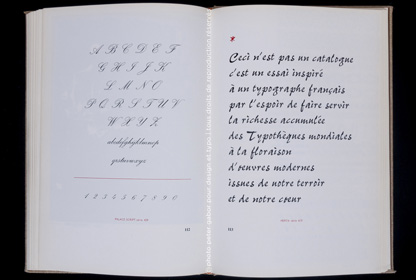 A B C D E F
G H I J K
L M N O
P Q R S T U V
W X Y Z
abcdefghijklmnop
qrstuvwxyz
1 2 3 4 5 6 7 8 9 0
*
Ceci n'est pas un catalogue
c'est un essai inspiré
à un typographe français
par l'espoir de faire servir
la richesse accumulée
des Typothèques mondiales
à la floraison
d'œuvres modernes
issues de notre terroir
et de notre cœur